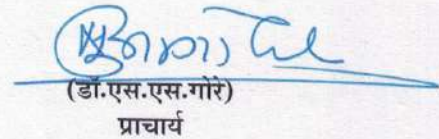 (डॉ.एस.एस.गोरे)
प्राचार्य